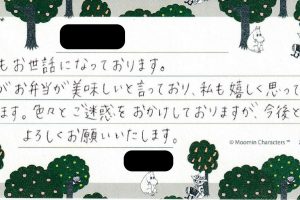 もお世話になっております。
がお弁当が美味しいと言っており、私も嬉しく思って
ます。色々とご迷惑をおかけしておりますが、今後と
よろしくお願いいたします。
© Moomin Characters™